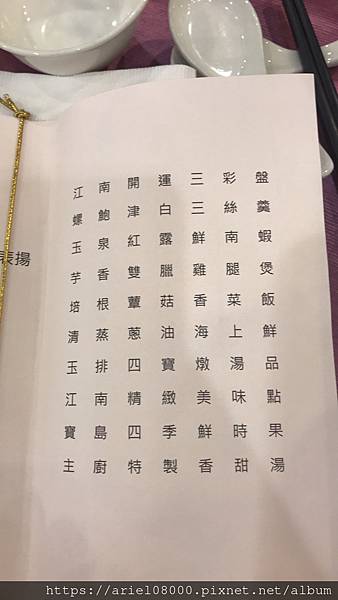 江南開運三彩盤
螺鮑津白三絲羹
玉泉紅露鮮南蝦
芋香雙臘雞腿煲
培根蕈菇香菜飯
清蒸蔥油海上鮮
玉排四寶燉湯品
江南精緻美味點
寶島四季鮮時果
主廚特製香甜湯
表揚
https://ariel08000.pixnet.net/album